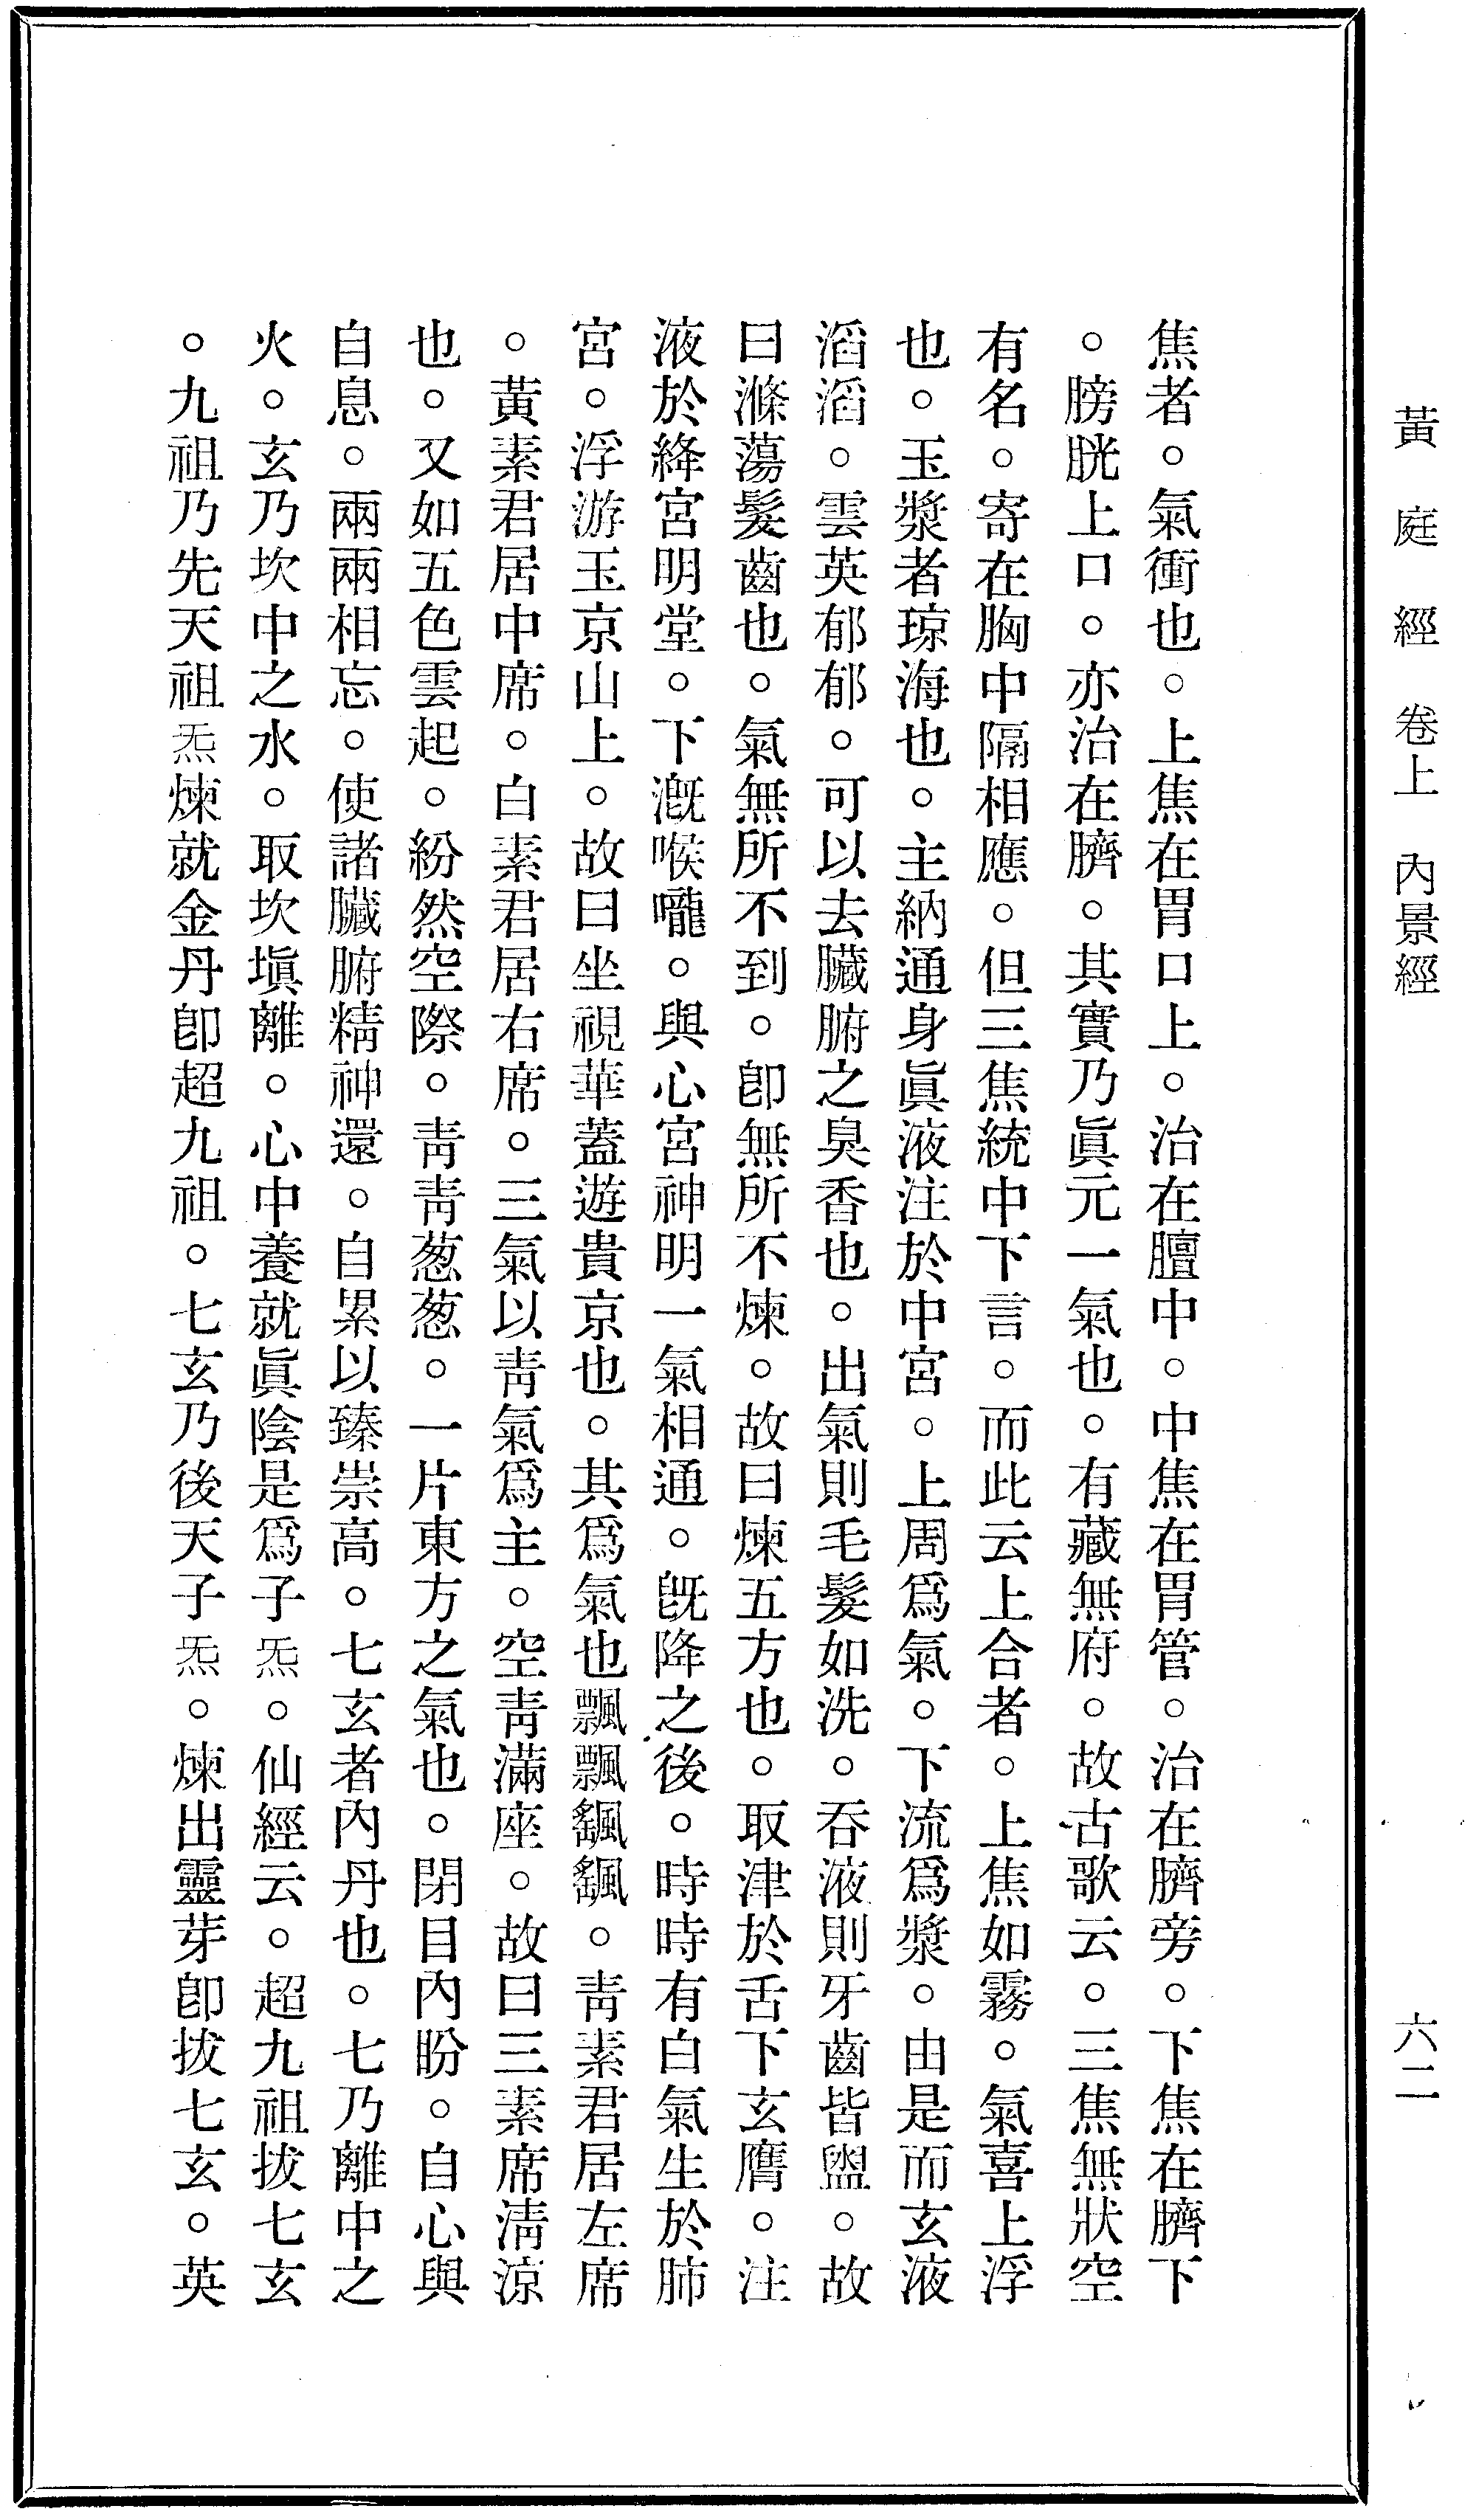 黃庭經 卷上 內景經 六二
焦者。氣衝也。上焦在胃口上。治在膻中。中焦在胃管。治在臍旁。下焦在臍下
。膀胱上口。亦治在臍。其實乃眞元一氣也。有藏無府。故古歌云。三焦無狀空
有名。寄在胸中隔相應。但三焦統中下言。而此云上合者。上焦如霧。氣喜上浮
也。玉漿者琼海也。主納通身眞液注於中宮。上周爲氣。下流爲漿。由是而玄液
滔滔。雲英郁郁。可以去臟腑之臭香也。出氣則毛髮如洗。吞液則牙齒皆盥。故
曰滌蕩髮齒也。氣無所不到。卽無所不煉。故曰煉五方也。取津於舌下玄膺。注
液於絳宮明堂。下漑喉嚨。與心宮神明一氣相通。旣降之後。時時有白氣生於肺
宮。浮游玉京山上。故曰坐視華蓋遊貴京也。其爲氣也飄飄颻颻。靑素君居左席
。黃素君居中席。白素君居右席。三氣以靑氣爲主。空靑滿座。故曰三素席淸涼
也。又如五色雲起。紛然空際。靑靑葱葱。一片東方之氣也。閉目內盼。自心與
自息。兩兩相忘。使諸臟腑精神還。自累以臻崇高。七玄者內丹也。七乃離中之
火。玄乃坎中之水。取坎塡離。心中養就眞陰是爲子炁。仙經云。超九祖拔七玄
。九祖乃先天祖炁煉就金丹卽超九祖。七玄乃後天子炁。煉出靈芽卽拔七玄。英